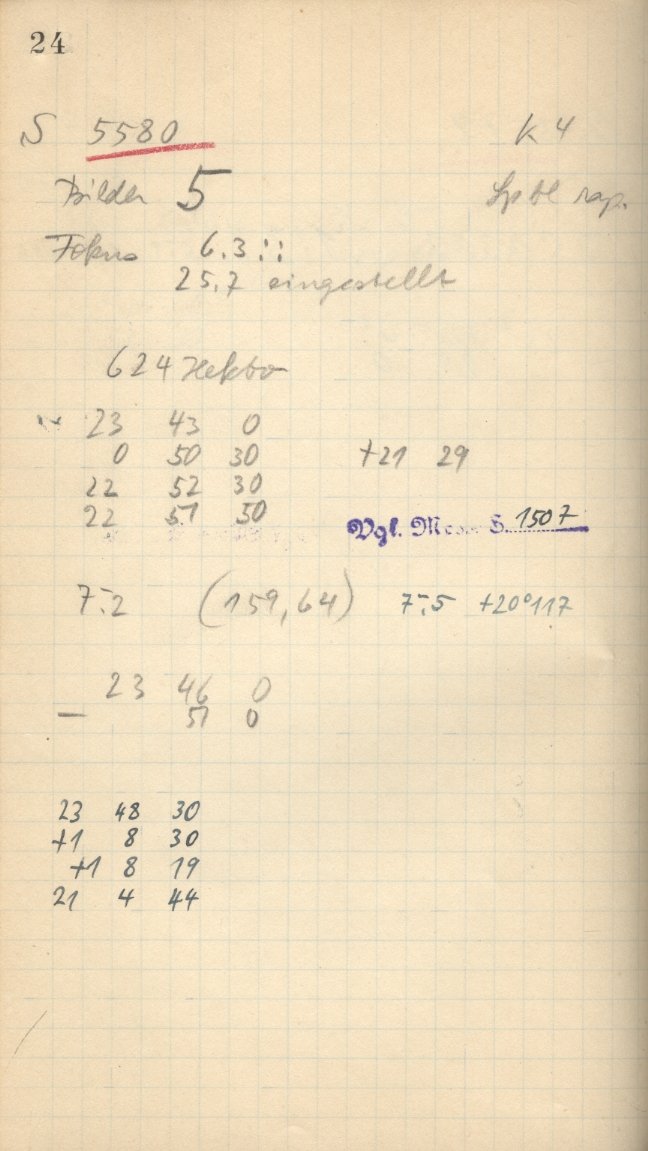 24
S 5580 K 4
Bilder 5
Fokus 6.3::
25.7 eingestellt
624 Hekto
23 43 0
0 50 30 +21 29
22 52 30
22 51 50 Vgl. S. 1507
7.2 (159,64) 7.5 +20°117
23 46 0
— 51 0
23 48 30
+1 8 30
+1 8 19
21 4 44